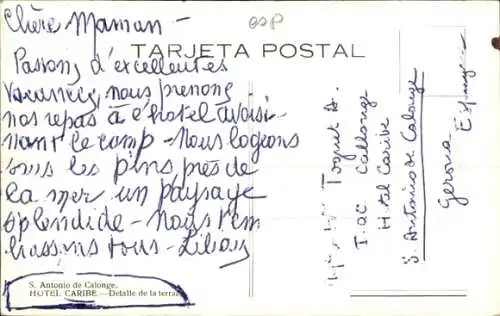 Chère Maman -
esp
TARJETA POSTAL
Passons d'excellentes
vacances, nous prenons
nos repas à l'hotel avoisi-
nant le camp - Nous logeons
sous les pins, près de
la mer un paysage
splendide - nous t'em
brassons tous - Lilian
S. Antonio de Calonge.
HOTEL CARIBE.—Detalle de la terraza
T.OC Callonge
Hotel Caribe
S. Antonio de Calonge
Gerona
Espagne